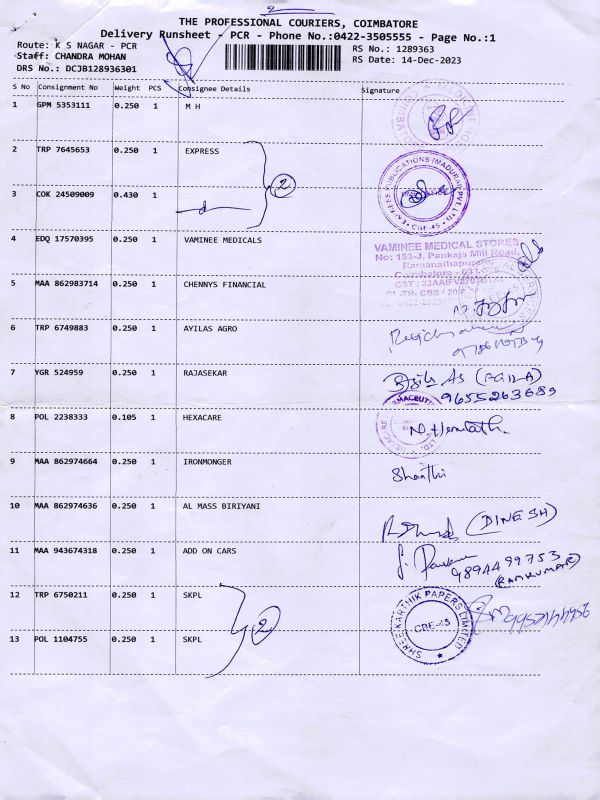 2
THE PROFESSIONAL COURIERS, COIMBATORE
Delivery Runsheet - PCR - Phone No.:0422-3505555 - Page No.:1
Route: K S NAGAR - PCR
RS No.: 1289363
Staff: CHANDRA MOHAN
RS Date: 14-Dec-2023
DRS No.: DCJB128936301
S No Consignment No Weight PCS Consignee Details Signature
1 GPM 5353111 0.250 1 M H
2 TRP 7645653 0.250 1 EXPRESS
2
3 COK 24509009 0.430 1
EXPRESS PUBLICATIONS (MADURAI) PVT. LTD. CBE-45
4 EDQ 17570395 0.250 1 VAMINEE MEDICALS
VAMINEE MEDICAL STORES
No: 153-J, Pankaja Mill Road,
Ramanathapuram,
5 MAA 862983714 0.250 1 CHENNYS FINANCIAL
6 TRP 6749883 0.250 1 AYILAS AGRO
7 YGR 524959 0.250 1 RAJASEKAR
9655263689
8 POL 2238333 0.105 1 HEXACARE
9 MAA 862974664 0.250 1 IRONMONGER
Shanthi
10 MAA 862974636 0.250 1 AL MASS BIRIYANI
(DINESH)
11 MAA 943674318 0.250 1 ADD ON CARS
9894499753
(RAMKUMAR)
12 TRP 6750211 0.250 1 SKPL
2
SHREE KARTHIK PAPERS LIMITED CBE-45
13 POL 1104755 0.250 1 SKPL